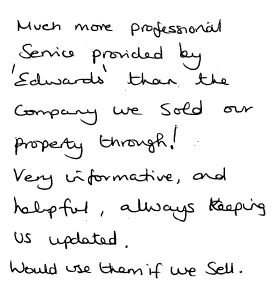 Much more professional
Service provided by
'Edwards' than the
Company we sold our
property through!
Very informative, and
helpful, always keeping
us updated.
Would use them if we sell.